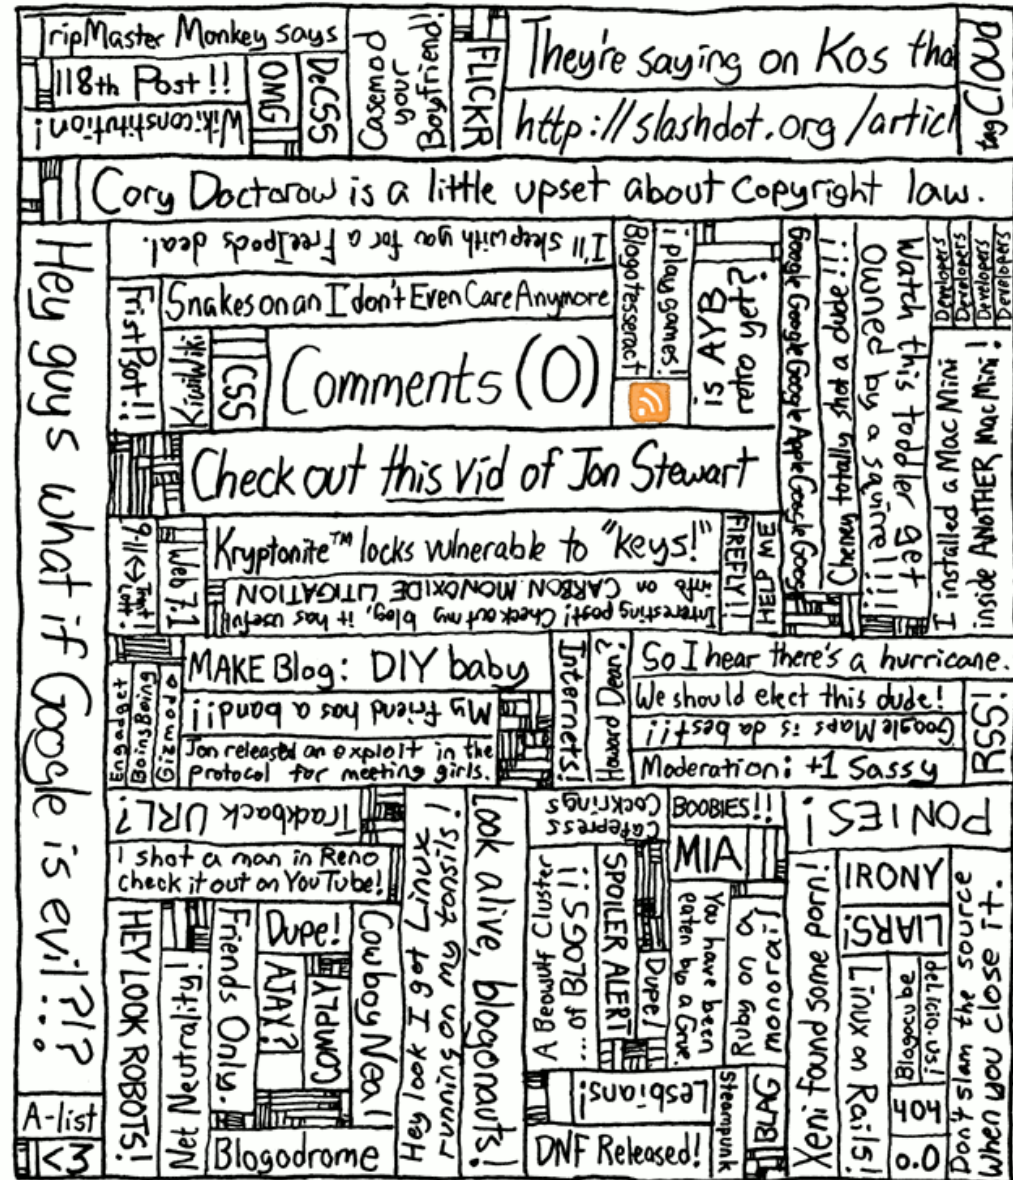 TripMaster Monkey says
118th Post !!
Wikiconstitution!
OMG
DeCSS
Casemod
your
Boyfriend!
FLICKR
They're saying on Kos tha
http://slashdot.org/articl
tag Cloud
Cory Doctorow is a little upset about copyright law.
Hey guys what if Google is evil?!?
I'll sleep with you for a FreeIpods deal.
Snakes on an I don't Even Care Anymore
FristPsot!!
KiwiWiki
CSS
Comments (0)
Blogotesseract
i play games!
is AYB
retro yet?
Google Google Google Google Apple Google Google
Cheney totally shot a dude!!!
Watch this toddler get
Owned by a squirrel!!!
Developers
Developers
Developers
Developers
I installed a Mac Mini
inside ANOTHER Mac Mini!
Check out this vid of Jon Stewart
9-11<->Trent
Lott!
Web 7.1
Kryptonite™ locks vulnerable to "keys!"
Interesting post! Check out my blog, it has useful
info on CARBON MONOXIDE LITIGATION
FIREFLY!!
HELP ME
Engadget
BoingBoing
Gizmodo
MAKE Blog: DIY baby
My friend has a band!!
Jon released an exploit in the
protocol for meeting girls.
Internets!
Howard Dean?
So I hear there's a hurricane.
We should elect this dude!
Google Maps is da best!!!
Moderation: +1 Sassy
RSS!
Trackback URL?
I shot a man in Reno
check it out on YouTube!
HEY LOOK ROBOTS!
Net Neutrality!
Friends Only.
Dupe!
AJAX?
COMPLY
CowboyNeal
Blogodrome
A-list
<3
Hey look I got Linux
running on my tonsils!
Look alive, blogonauts!
Cafepress
Cockrings
A Beowulf Cluster
... of BLOGS!!
SPOILER ALERT!
Dupe!
BOOBIES!!
MIA
You have been
eaten by a Grue.
Ruby on a
monorail
Lesbians!
DNF Released!
Steampunk
BLAG
PONIES!
Xeni found some porn!
IRONY
LIARS!
Linux on Rails!
Blogocube
del.icio.us!
404
0.0
Don't slam the source
When you close it.